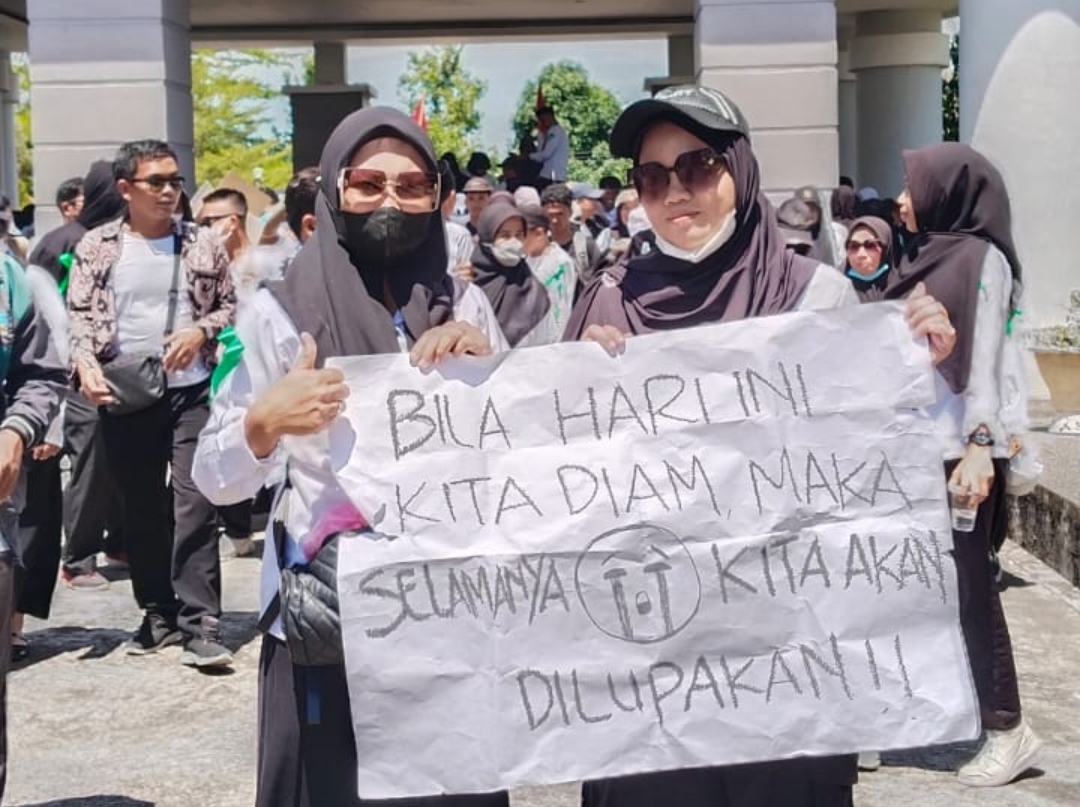 BILA HARI INI
KITA DIAM, MAKA
SELAMANYA KITA AKAN
DILUPAKAN!!